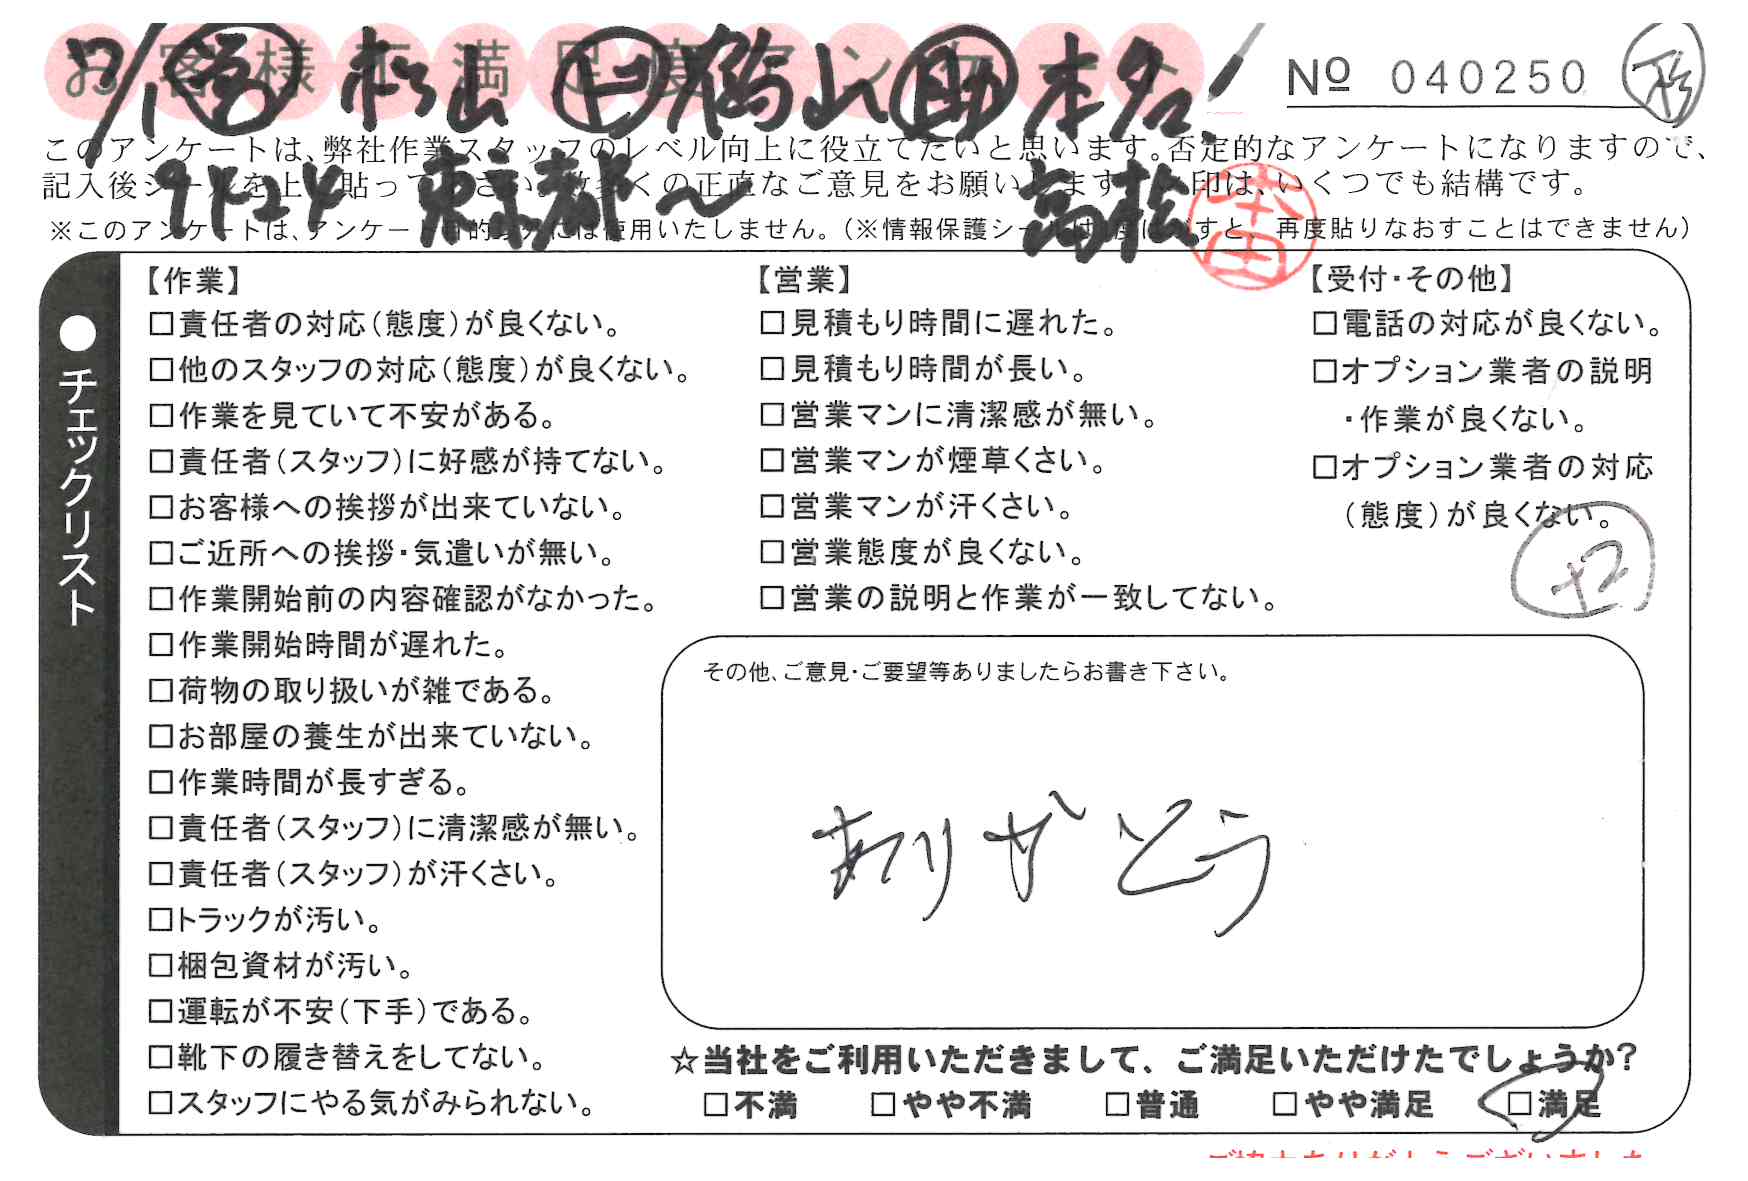 お客様不満足度アンケート
7/1 営 松山 上 橋山 助 本名
Nº 040250
杉
このアンケートは、弊社作業スタッフのレベル向上に役立てたいと思います。否定的なアンケートになりますので、
記入後シールを上に貼って下さい。数多くの正直なご意見をお願いします。レ印は、いくつでも結構です。
東京都〜 高松
※このアンケートは、アンケート目的以外には使用いたしません。(※情報保護シールは1度はがすと、再度貼りなおすことはできません)
●チェックリスト
【作業】
□責任者の対応(態度)が良くない。
□他のスタッフの対応(態度)が良くない。
□作業を見ていて不安がある。
□責任者(スタッフ)に好感が持てない。
□お客様への挨拶が出来ていない。
□ご近所への挨拶・気遣いが無い。
□作業開始前の内容確認がなかった。
□作業開始時間が遅れた。
□荷物の取り扱いが雑である。
□お部屋の養生が出来ていない。
□作業時間が長すぎる。
□責任者(スタッフ)に清潔感が無い。
□責任者(スタッフ)が汗くさい。
□トラックが汚い。
□梱包資材が汚い。
□運転が不安(下手)である。
□靴下の履き替えをしてない。
□スタッフにやる気がみられない。
【営業】
□見積もり時間に遅れた。
□見積もり時間が長い。
□営業マンに清潔感が無い。
□営業マンが煙草くさい。
□営業マンが汗くさい。
□営業態度が良くない。
□営業の説明と作業が一致してない。
【受付・その他】
□電話の対応が良くない。
□オプション業者の説明
・作業が良くない。
□オプション業者の対応
(態度)が良くない。
+2
その他、ご意見・ご要望等ありましたらお書き下さい。
ありがとう
☆当社をご利用いただきまして、ご満足いただけたでしょうか?
□不満 □やや不満 □普通 □やや満足 □満足
ご協力ありがとうございました